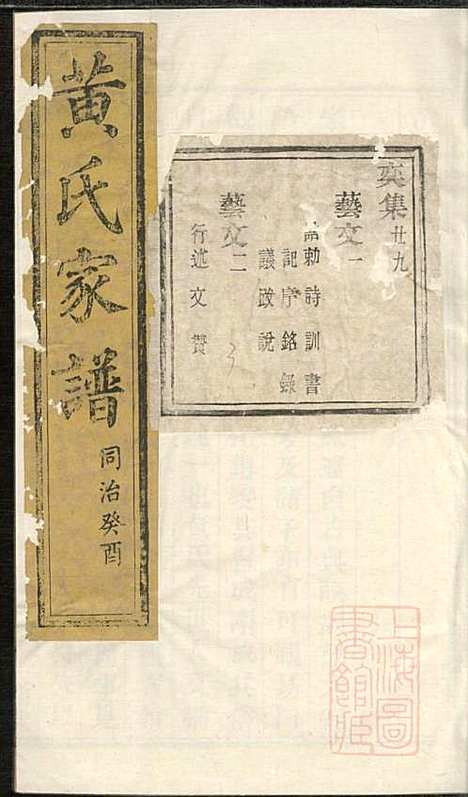 黄氏家譜
同治癸酉
集廿九
藝文一
勅詩訓書
記序銘錄
議政說
藝文二
行述文贊
上海圖
書館臧